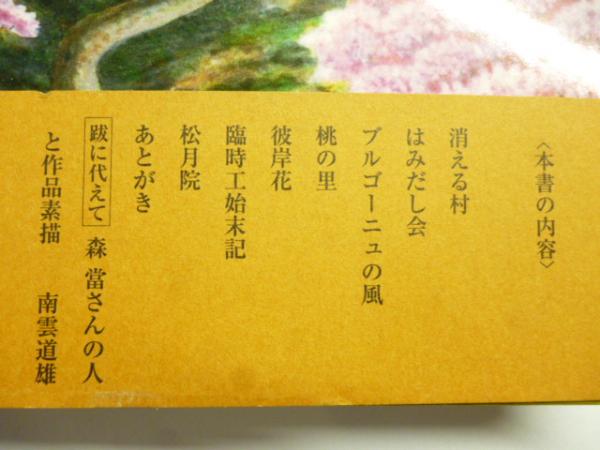 〈本書の内容〉
消える村
はみだし会
ブルゴーニュの風
桃の里
彼岸花
臨時工始末記
松月院
あとがき
跋に代えて 森 當さんの人
と作品素描 南雲道雄